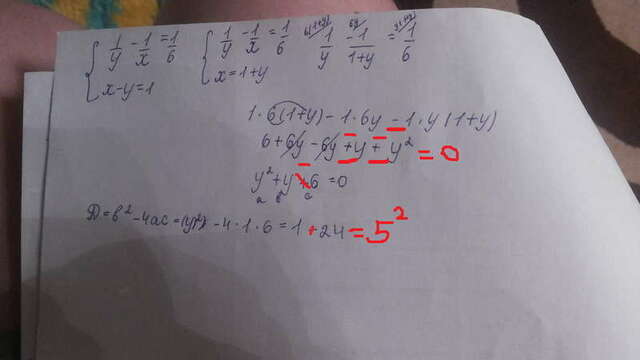 1/y - 1/x = 1/6
x-y=1
1/y - 1/x = 1/6
x=1+y
6(1+y) 6y y(1+y)
1/y -1/1+y = 1/6
1·6(1+y) - 1·6y - 1·y(1+y)
6+6y-6y+y+y² =0
y²+y+6=0
a в c
D=в²-4ac= -4·1·6=1+24=5²